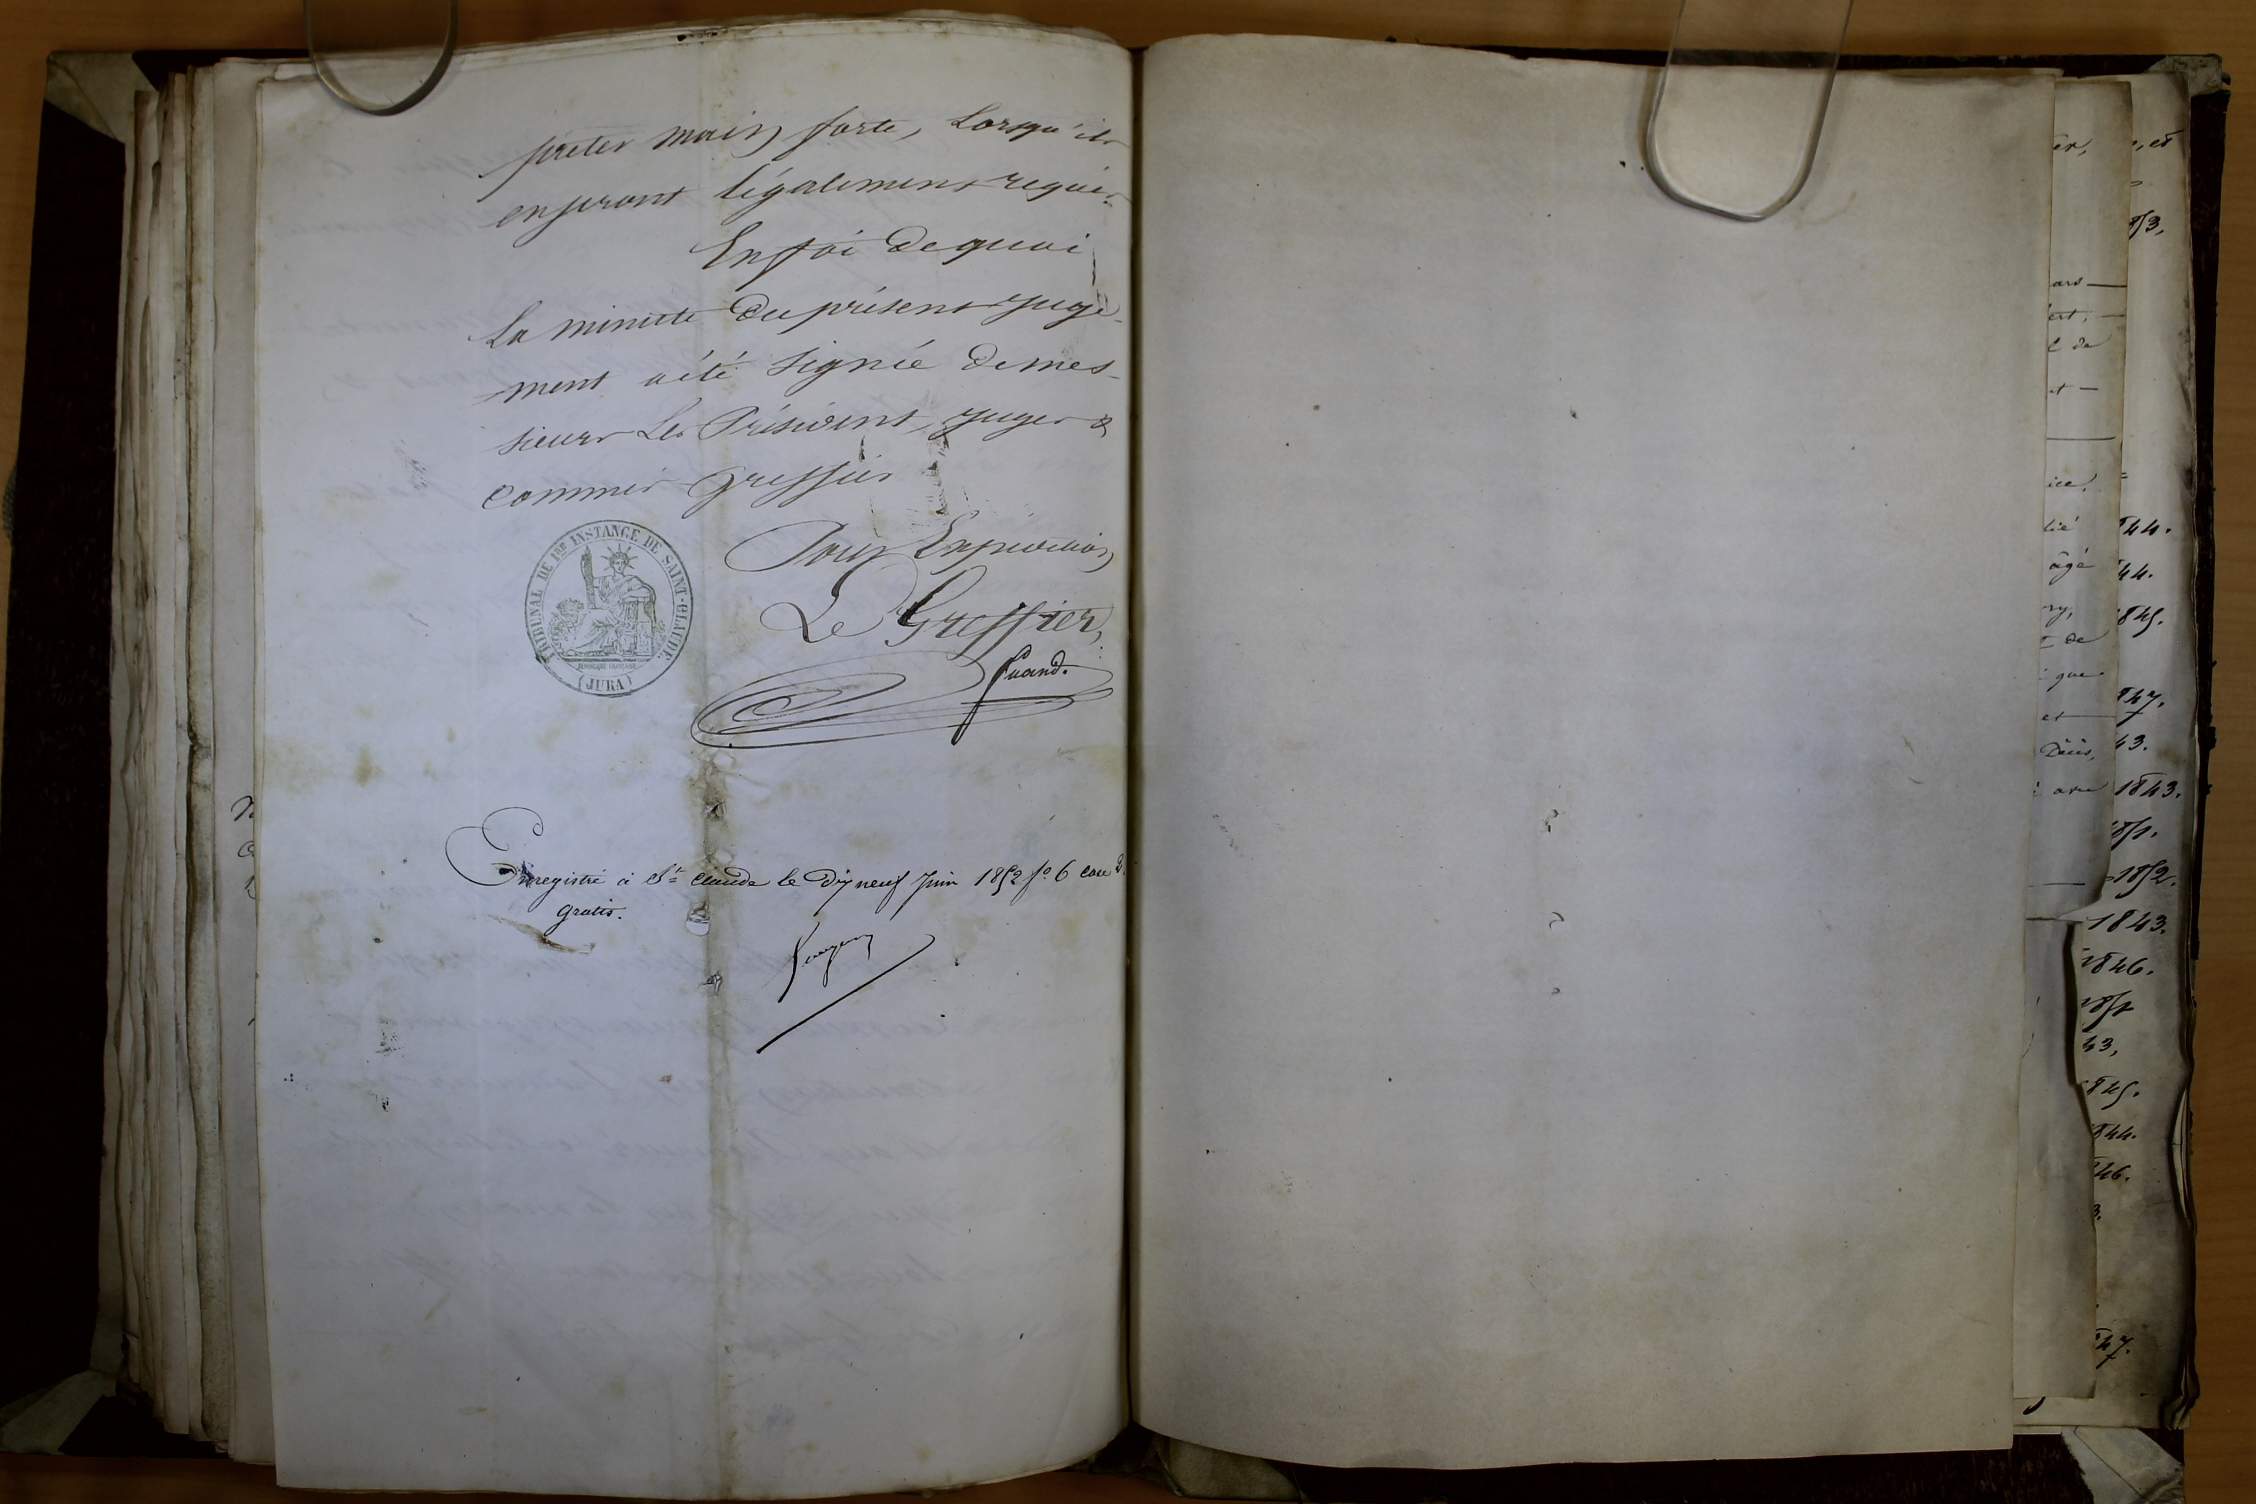 prêter main forte, Lorsqu'ils
en seront légalement requis.
En foi de quoi
La minute du présent juge-
ment a été signée de mes-
sieurs Les Président, juges &
commis greffier
TRIBUNAL DE 1ère INSTANCE DE SAINT-CLAUDE.
(JURA)
Pour Expédition
Le Greffier,
Enregistré à St claude le Dix neuf Juin 1852 fo 6 case 3.
gratis.
er,
, et
ars
ert,
l de
et
ice,
lié
âgé
ry,
t de
que
et
844.
44.
1845.
847.
43.
1843.
1852.
1843.
1846.
43,
845.
844.
46.
3.
47.